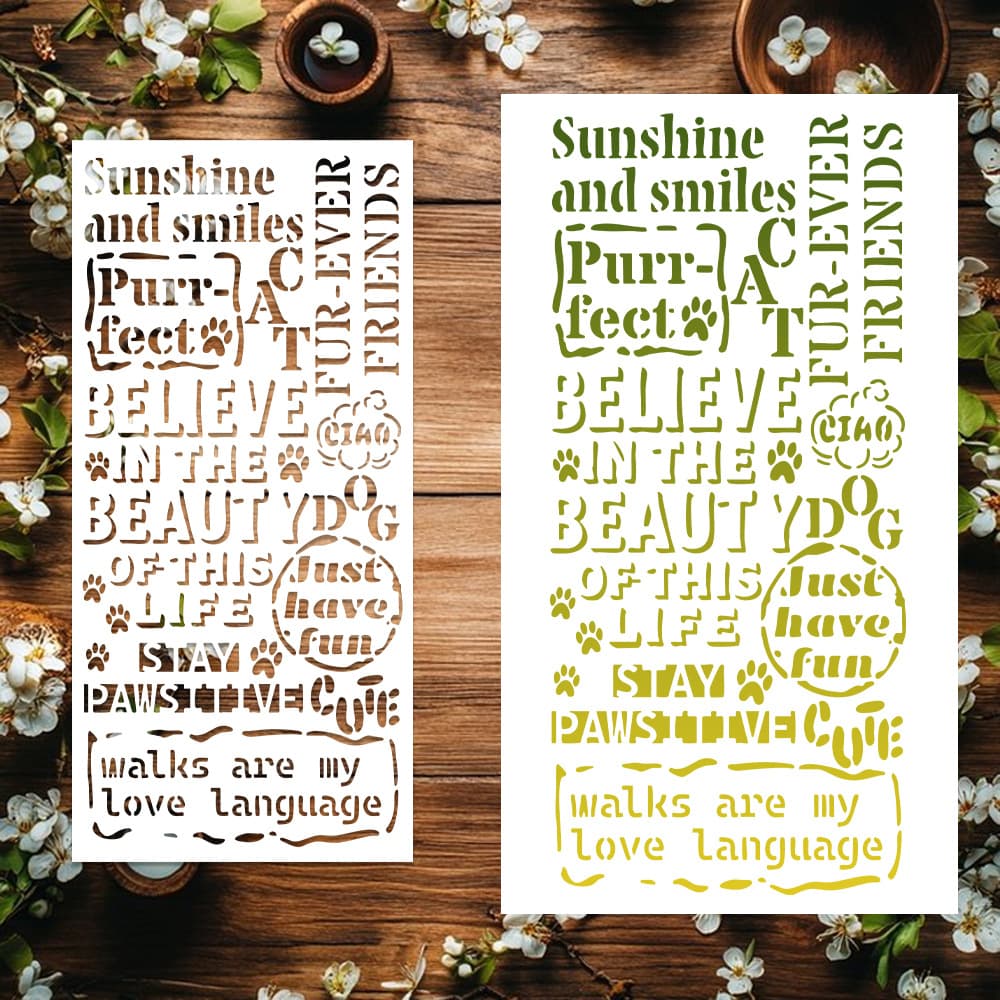 Sunshine
and smiles
Purr-
fect
CAT
FUR-EVER
FRIENDS
BELIEVE
IN THE
BEAUTY
OF THIS
LIFE
CIAO
DOG
Just
have
fun
STAY
PAWSITIVE
CUTE
walks are my
love language
Sunshine
and smiles
Purr-
fect
CAT
FUR-EVER
FRIENDS
BELIEVE
IN THE
BEAUTY
OF THIS
LIFE
CIAO
DOG
Just
have
fun
STAY
PAWSITIVE
CUTE
walks are my
love language